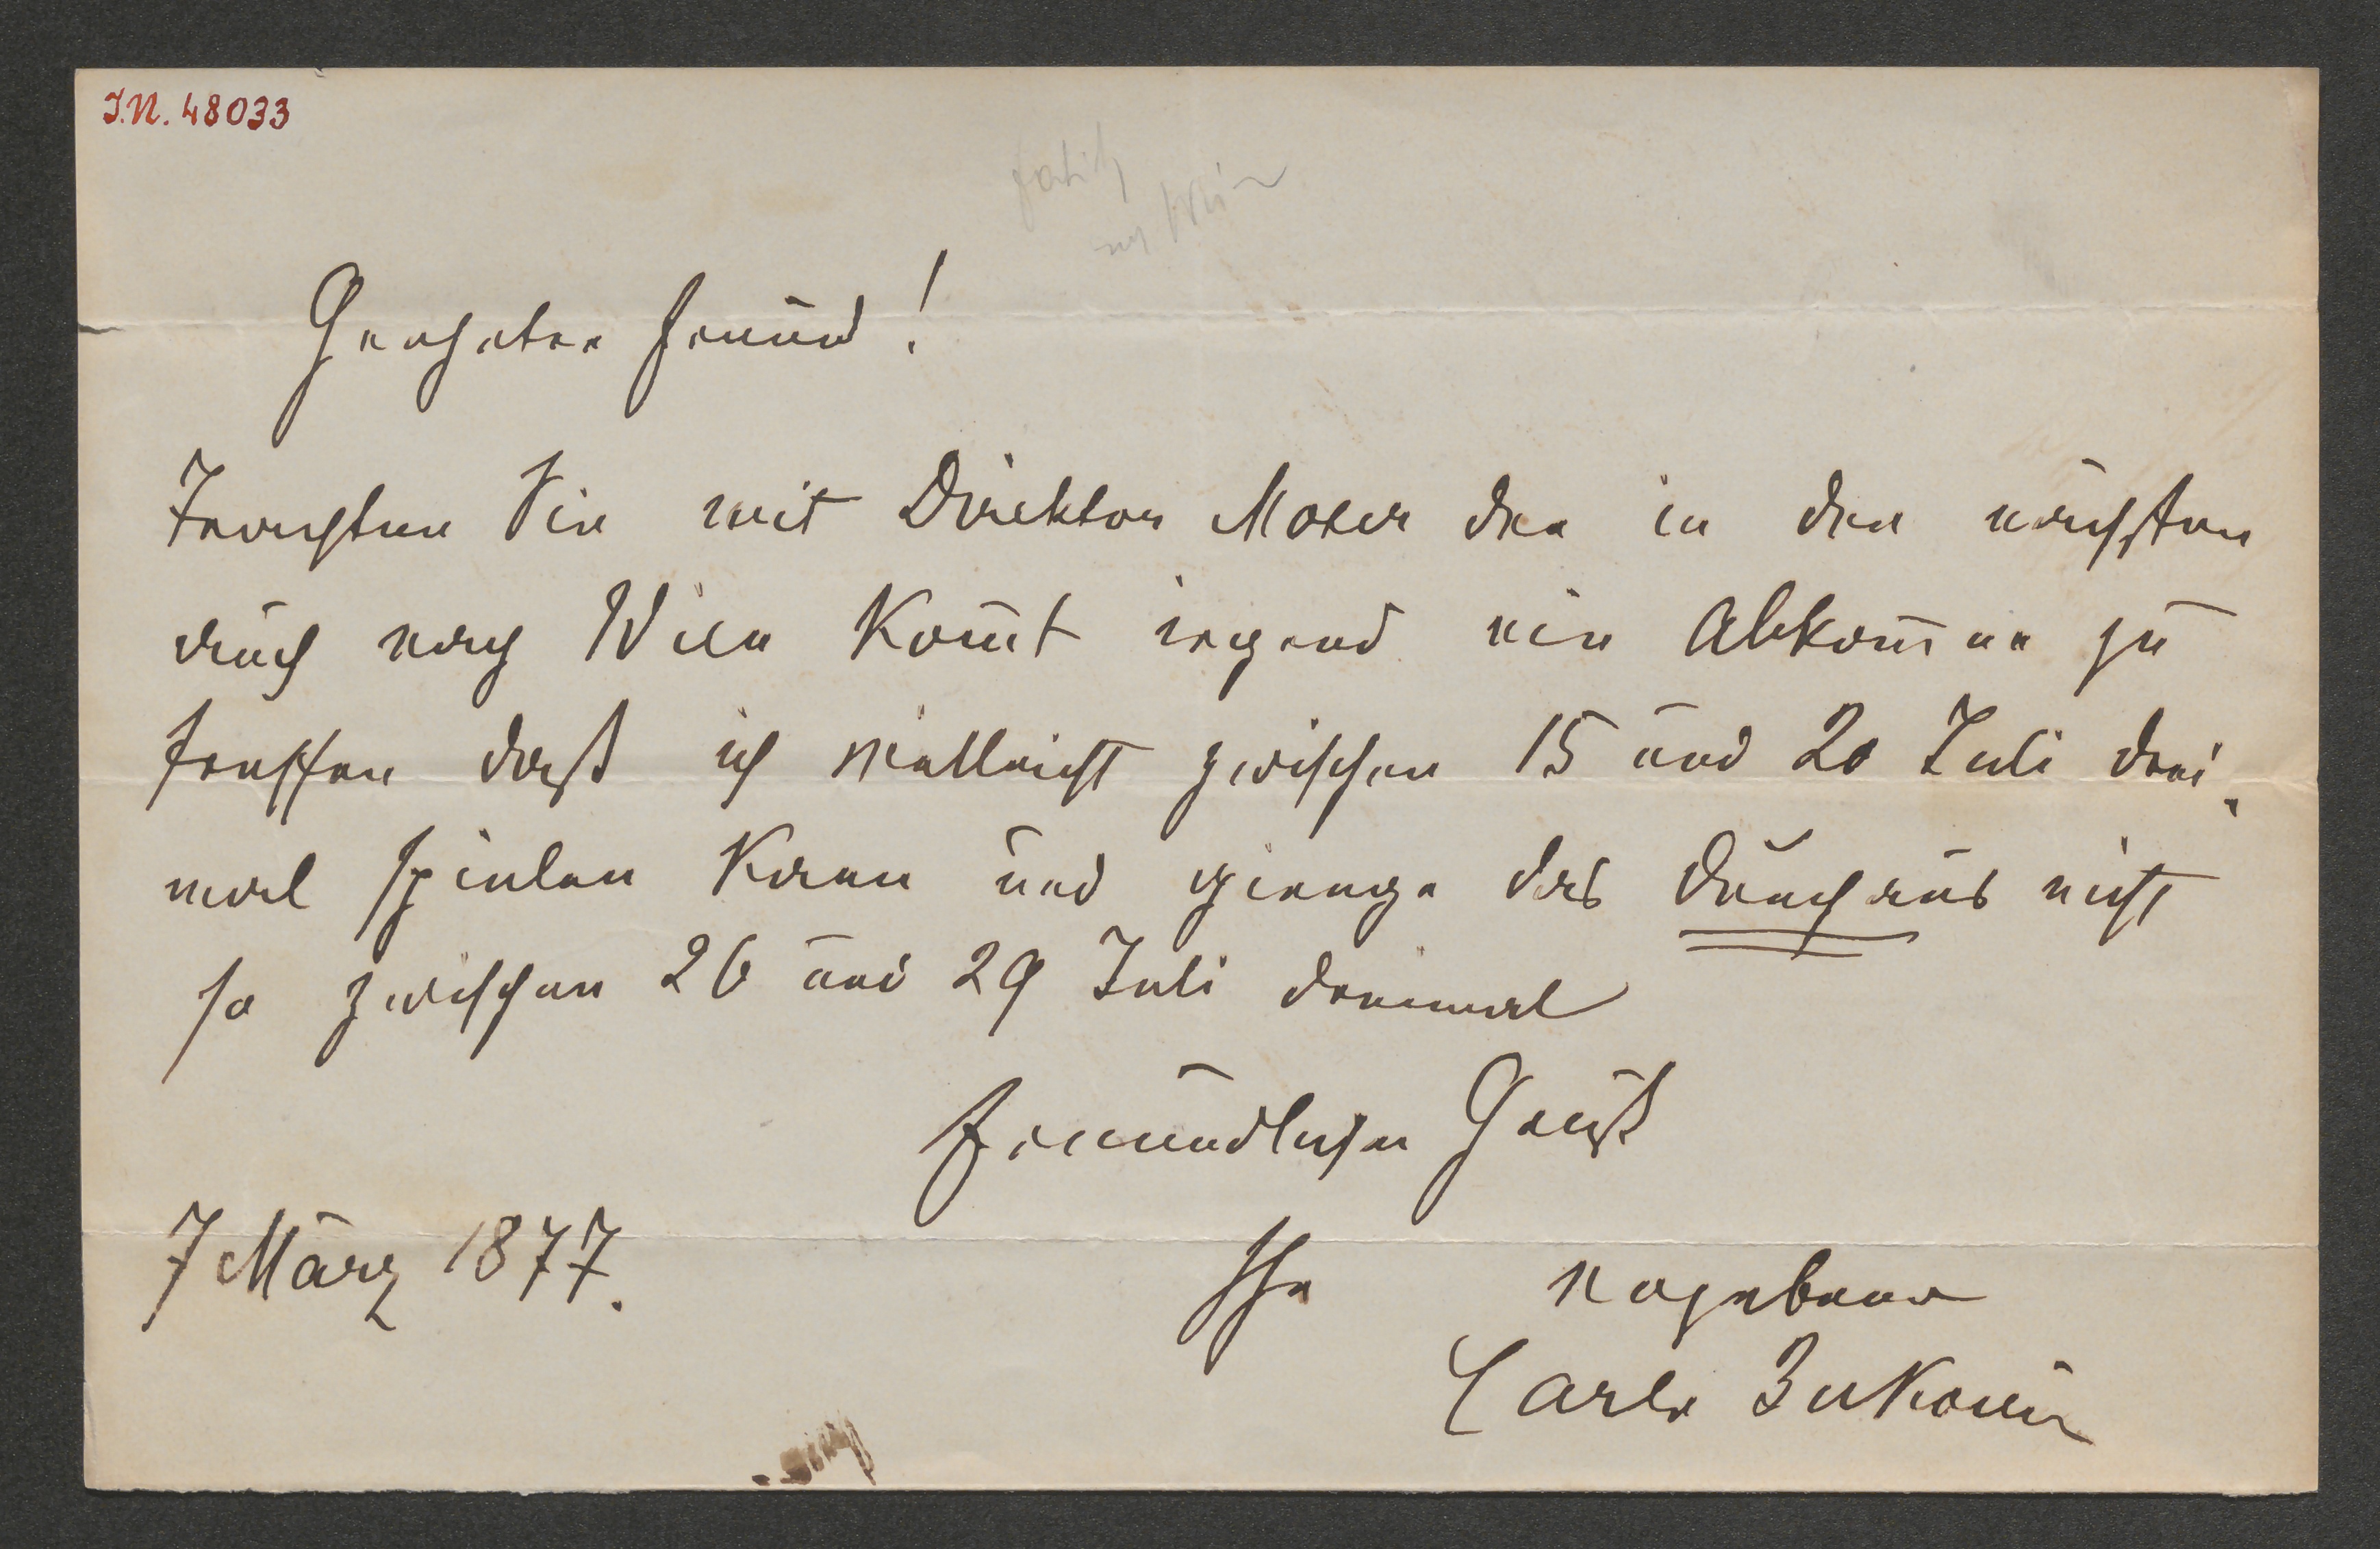 I.N. 48033
Geehrter Freund!
Trachten Sie mit Direktor Moser der in den nächsten
nach Wien kom̅t irgend ein Abkom̅en zu
treffen daß ich vielleicht zwischen 15 und 20 Juli drei-
mal spielen kann und gienge das durchaus nicht
so zwischen 26 und 29 Juli dreimal
Freundlichen Gruß
7 März 1877.
Ihr ergebener
Carl